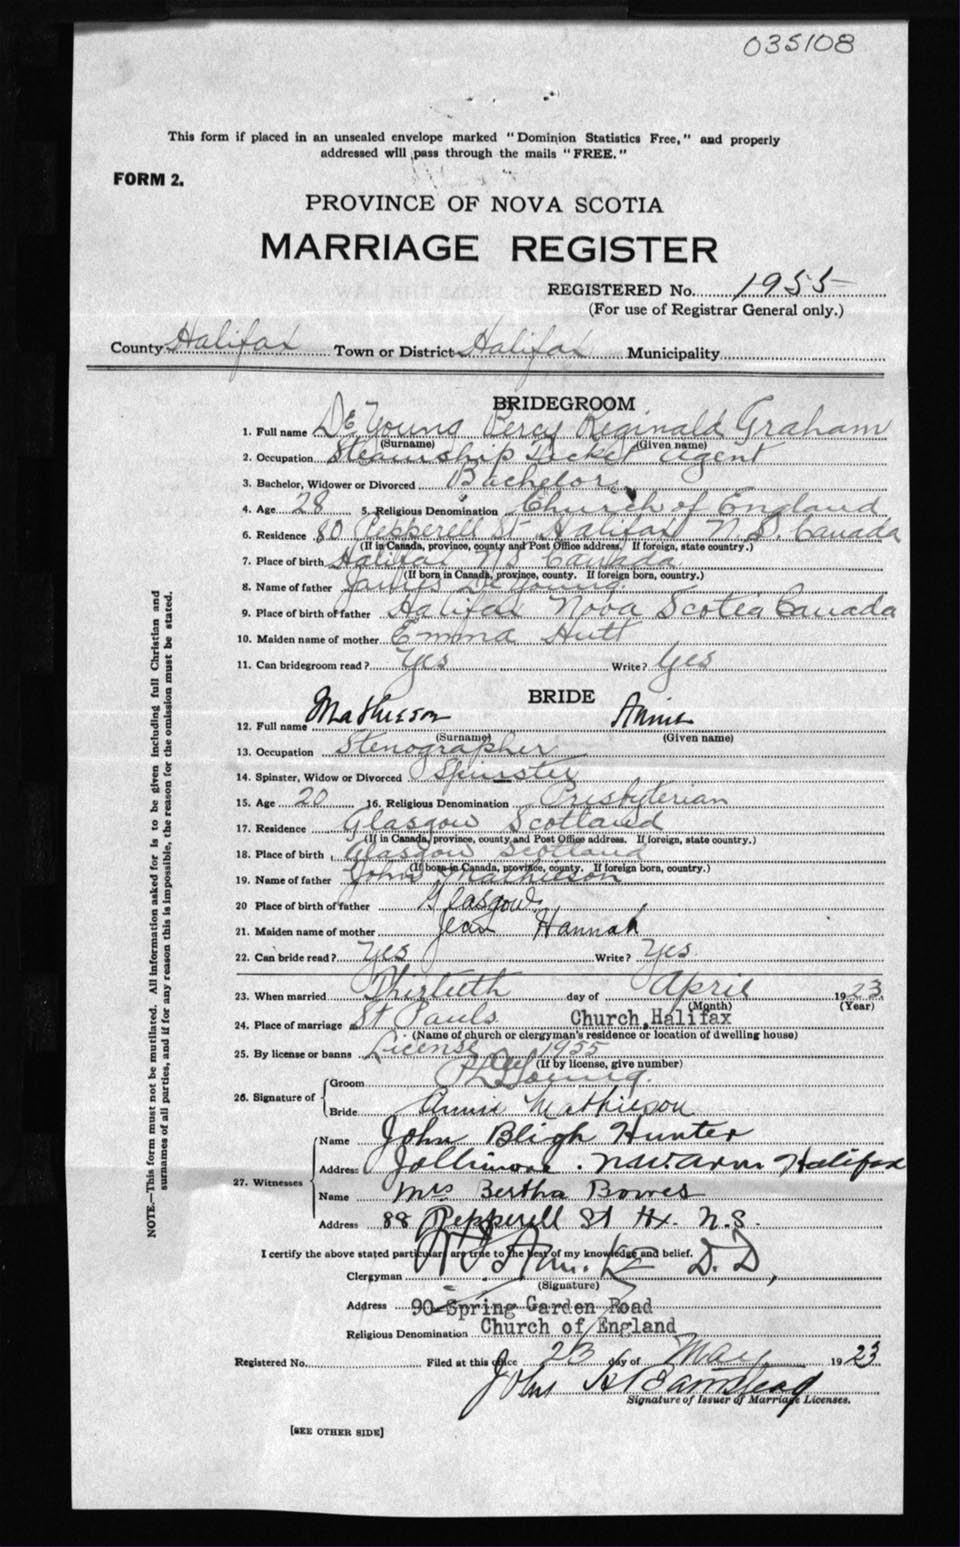 035108
This form if placed in an unsealed envelope marked "Dominion Statistics Free," and properly
addressed will pass through the mails "FREE."
FORM 2.
PROVINCE OF NOVA SCOTIA
MARRIAGE REGISTER
REGISTERED No. 1955
(For use of Registrar General only.)
County Halifax Town or District Halifax Municipality
BRIDEGROOM
1. Full name DeYoung Percy Reginald Graham
(Surname) (Given name)
2. Occupation Steamship Ticket Agent
3. Bachelor, Widower or Divorced Bachelor
4. Age 28 5. Religious Denomination Church of England
6. Residence 80 Pepperell St Halifax N.S. Canada
(If in Canada, province, county and Post Office address. If foreign, state country.)
7. Place of birth Halifax N S Canada
(If born in Canada, province, county. If foreign born, country.)
8. Name of father James DeYoung
9. Place of birth of father Halifax Nova Scotia Canada
10. Maiden name of mother Emma Hutt
11. Can bridegroom read? Yes Write? Yes
BRIDE
12. Full name Mathieson Annie
(Surname) (Given name)
13. Occupation Stenographer
14. Spinster, Widow or Divorced Spinster
15. Age 20 16. Religious Denomination Presbyterian
17. Residence Glasgow Scotland
(If in Canada, province, county and Post Office address. If foreign, state country.)
18. Place of birth Glasgow Scotland
(If born in Canada, province, county. If foreign born, country.)
19. Name of father John Mathieson
20 Place of birth of father Glasgow
21. Maiden name of mother Jean Hannah
22. Can bride read? Yes Write? Yes.
23. When married Thirtieth day of April 1923
(Month) (Year)
24. Place of marriage St Pauls Church, Halifax
(Name of church or clergyman's residence or location of dwelling house)
25. By license or banns License 1955
(If by license, give number)
26. Signature of Groom DeYoung.
Bride Annie Mathieson
27. Witnesses Name John Bligh Hunter
Address Jollimore. N.W. Arm Halifax
Name Mrs Bertha Bowes
Address 88 Pepperell St Hx. N.S.
I certify the above stated particulars are true to the best of my knowledge and belief.
Clergyman D.D,
(Signature)
Address 90 Spring Garden Road
Religious Denomination Church of England
Registered No. Filed at this office 23 day of May 1923
John
Signature of Issuer of Marriage Licenses.
[SEE OTHER SIDE]
NOTE.—This form must not be mutilated. All information asked for is to be given including full Christian and
surnames of all parties, and if for any reason this is impossible, the reason for the omission must be stated.